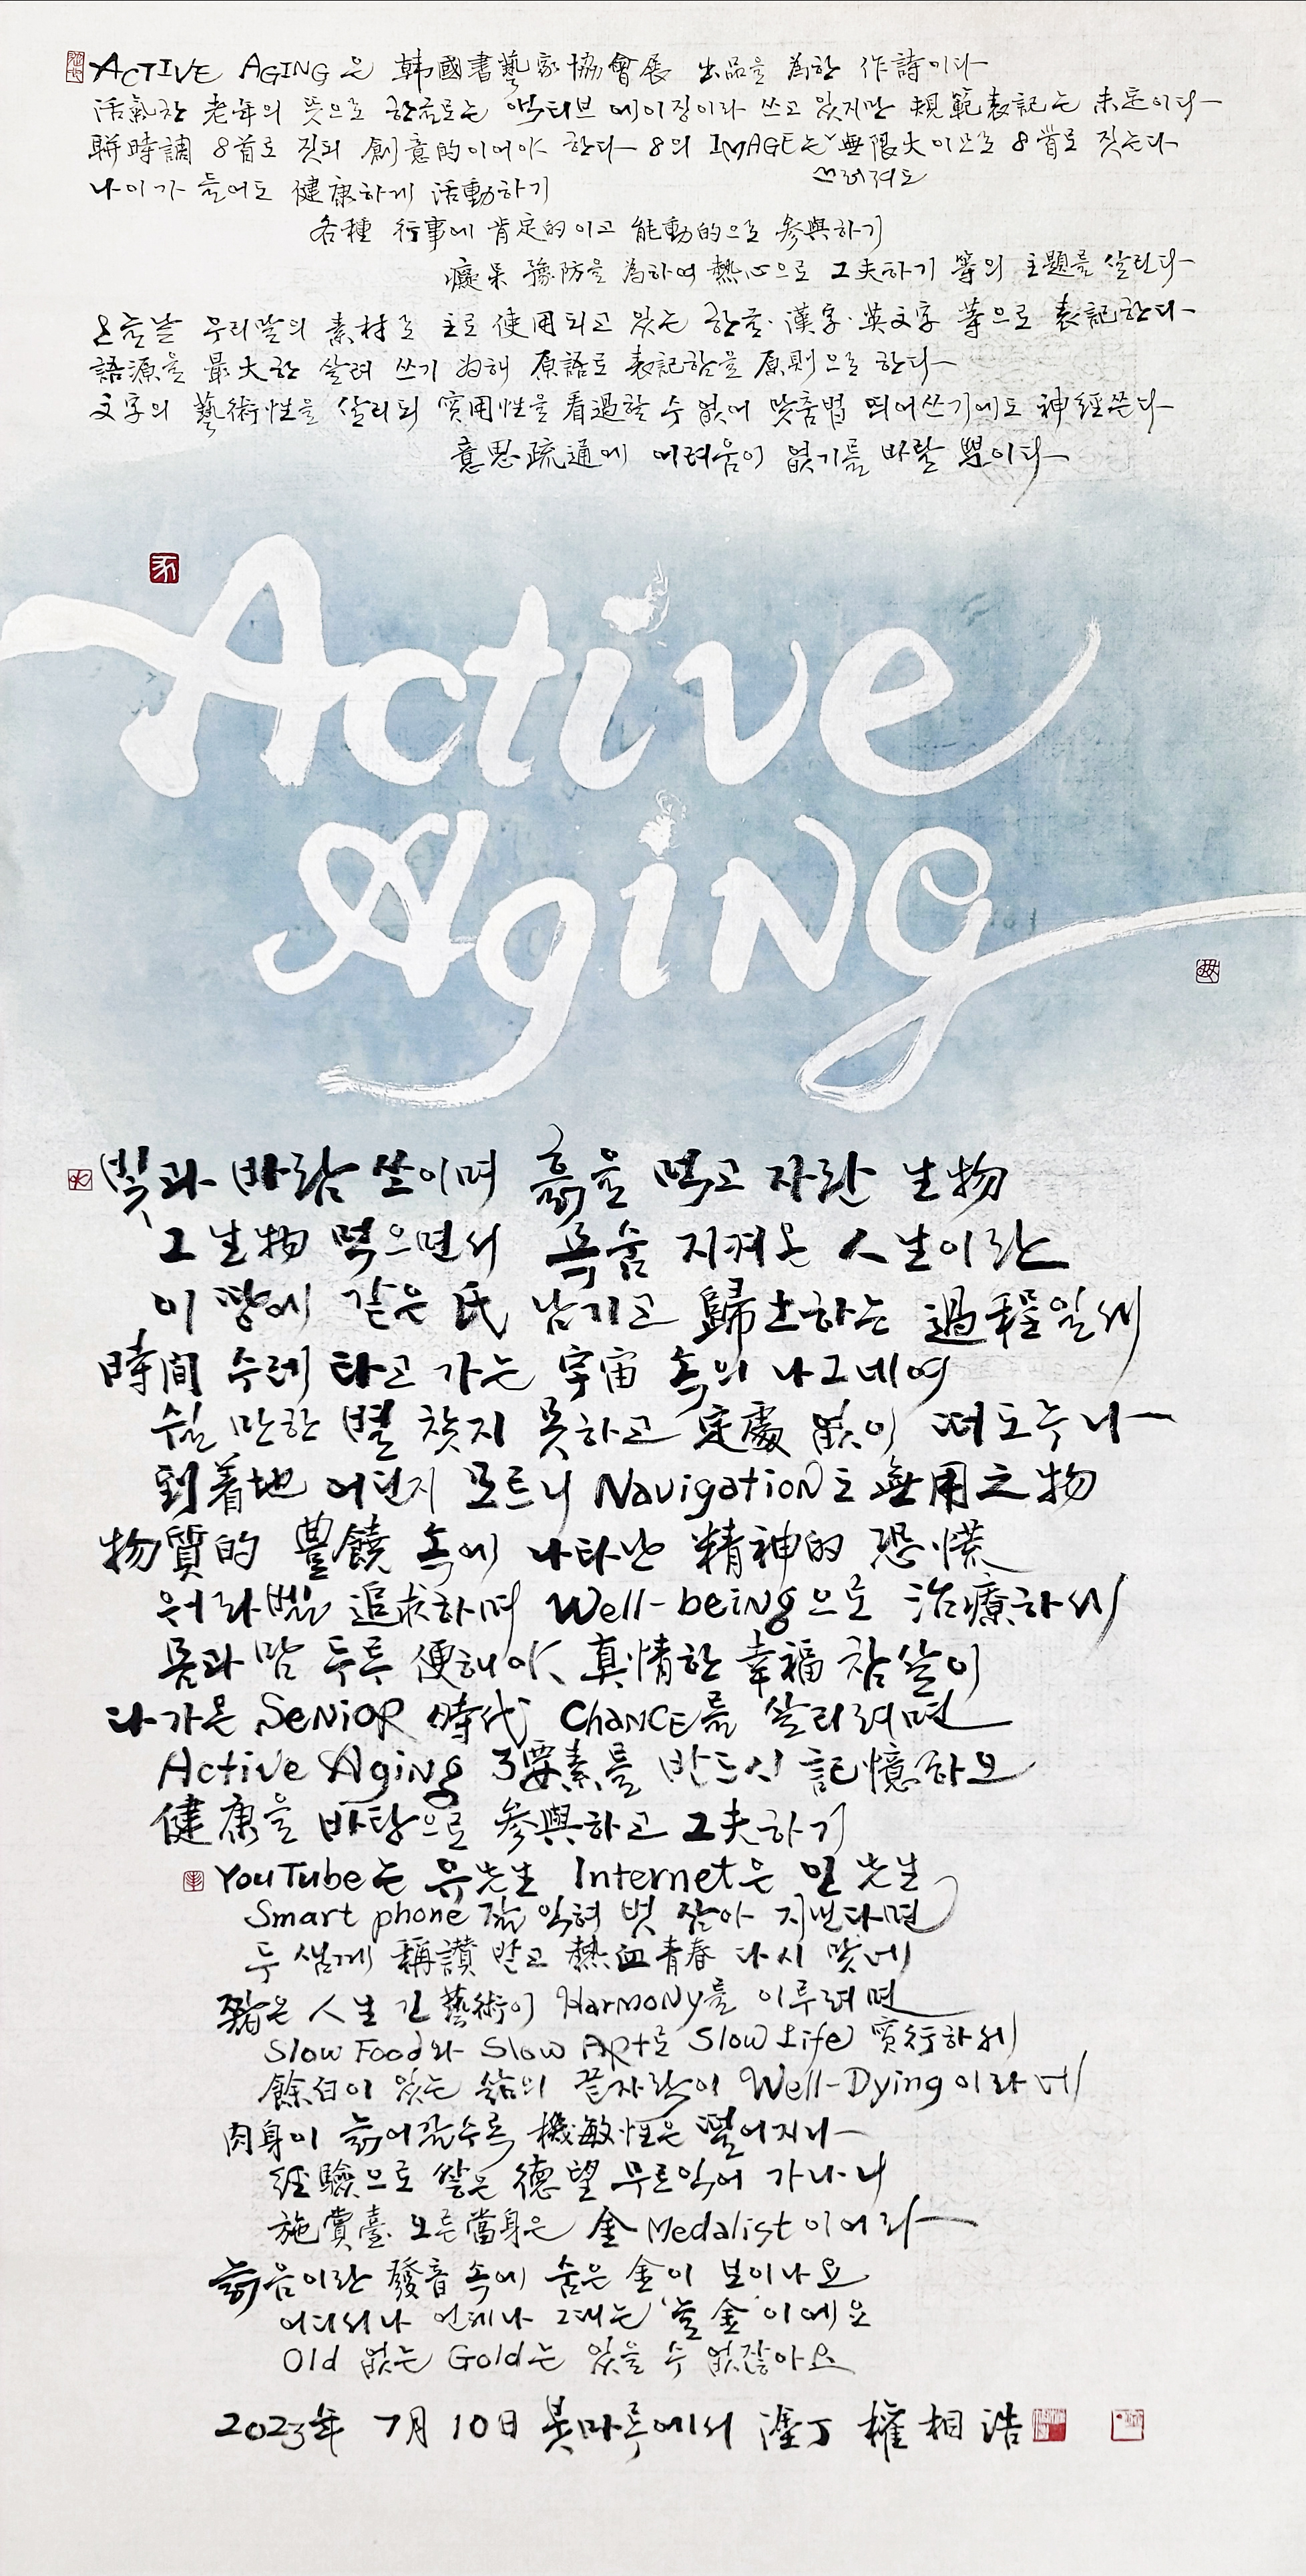 ACTIVE AGING은 韓國書藝家協會展 出品을 為한 作詩이다
活氣찬 老年의 뜻으로 한글로는 액티브 에이징이라 쓰고 있지만 規範表記는 未定이다
聯時調 8首로 짓되 創意的이어야 한다 8의 IMAGE는 無限大이므로 8首로 짓는다
쓰러져도
나이가 들어도 健康하게 活動하기
各種 行事에 肯定的이고 能動的으로 參與하기
癡呆 豫防을 為하여 熱心으로 工夫하기 等의 主題를 살린다
오늘날 우리말의 素材로 主로 使用되고 있는 한글·漢字·英文字 等으로 表記한다
語源을 最大한 살려 쓰기 위해 原語로 表記함을 原則으로 한다
文字의 藝術性을 살리되 實用性을 看過할 수 없어 맞춤법 띄어쓰기에도 神經쓴다
意思疏通에 어려움이 없기를 바랄 뿐이다
Active
Aging
빛과 바람 쏘이며 흙을 먹고 자란 生物
그 生物 먹으면서 목숨 지켜온 人生이란
이 땅에 같은 氏 남기고 歸土하는 過程일세
時間 수레 타고 가는 宇宙 속의 나그네여
쉴 만한 별 찾지 못하고 定處 없이 떠도누나
到着地 어딘지 모르니 Navigation도 無用之物
物質的 豊饒 속에 나타난 精神的 恐慌
워라밸 追求하며 Well-being으로 治療하세
몸과 맘 두루 便해야 真情한 幸福 참살이
다가온 SeNiOR 時代 ChaNCE를 살리려면
Active Aging 3要素를 반드시 記憶하오
健康을 바탕으로 參與하고 工夫하기
YouTube는 유先生 Internet은 인先生
Smart phone 잘 익혀 벗 삼아 지낸다면
두 쌤께 稱讚 받고 熱血靑春 다시 맞네
짧은 人生 긴 藝術이 HarmoNy를 이루려면
Slow Food와 Slow ARt로 Slow Life 實行하세
餘白이 있는 삶의 끝자락이 Well-Dying이라네
肉身이 늙어갈수록 機敏性은 떨어지나
經驗으로 쌓은 德望 무르익어 가나니
施賞臺 오른 當身은 金Medalist이어라
늙음이란 發音 속에 숨은 金이 보이나요
어디서나 언제나 그대는 '늘金'이에요
Old 없는 Gold는 있을 수 없잖아요
2023年 7月 10日 붓마루에서 塗丁 權相浩